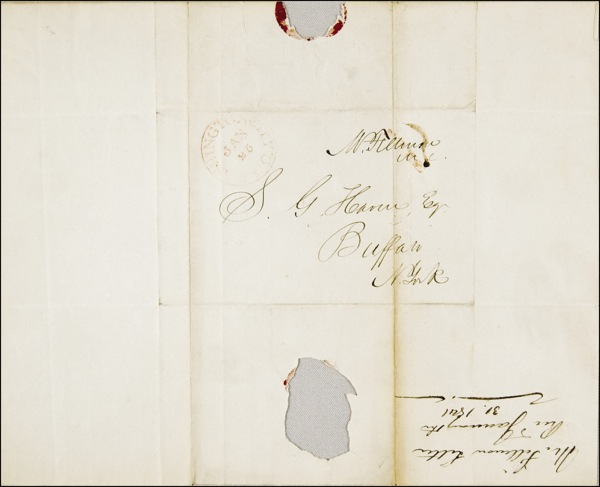 WASHINGTON CITY D.C.
JAN
26
M. Fillmore
M.C.
S. G. Haven Esq
Buffalo
N. York
Mr Fillmore letter
Rec'd January the
31. 1841